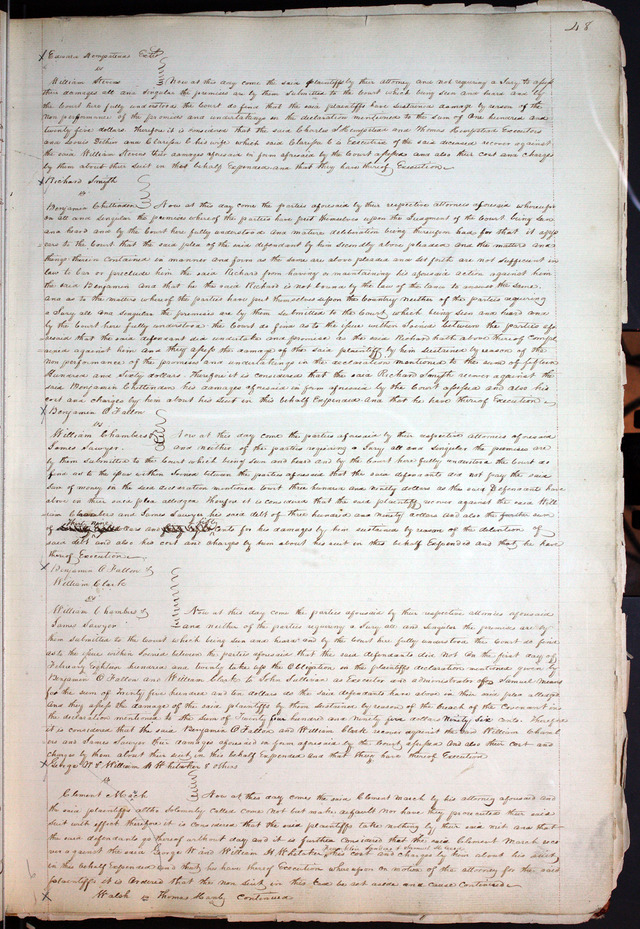 48
Edward Hempstead Extr
vs
William Stevens Now at this day come the said plaintiffs by their attorney and not requiring a Jury to assess
their damages all and Singular the premises are by them Submitted to the Court which being seen and heard and by
the Court here fully understood the Court do find that the said plaintiffs have sustained damage by reason of the
non performance of the promises and undertakings in the declaration mentioned to the sum of One hundred and
twenty five dollars. Therefore it is considered that the said Charles S Hempstead and Thomas Hempstead Executors
and Clarissa his wife which said Clarissa is Executrix of the said deceased recover against
the said William Stevens their damages aforesaid in form aforesaid by the Court assessed and also their cost and charges
by them about their Suit in this behalf Expended and that they have thereof Execution
Richard Smyth
vs
Benjamin Chittenden Now at this day come the parties aforesaid by their respective attorneys aforesaid whereupon
on all and singular the premises whereof the parties have put themselves upon the Judgment of the Court being seen
and heard and by the Court here fully understood and mature deliberation being thereupon had for that it appe
ars to the Court that the said plea of the said defendant by him secondly above pleaded and the matters and
things therein contained in manner and form as the same are above pleaded and set forth are not sufficient in
law to bar or preclude him the said Richard from having or maintaining his aforesaid action against him
the said Benjamin And that he the said Richard is not bound by the law of the land to answer the same.
and as to the matters whereof the parties have put themselves upon the Country neither of the parties requiring
a Jury all and singular the premises are by them submitted to the Court which being seen and heard and
by the Court here fully understood the Court do find as to the issue within Joined between the parties afo
resaid that the said defendant did undertake and promise as the said Richard hath above thereof Compl
ained against him and they assess the damage of the said plaintiff by him sustained by reason of the
non performance of the promises and undertakings in the declaration mentioned to the sum of fifteen
Hundred and Sixty dollars. Therefore it is considered that the said Richard Smyth recover against the
said Benjamin Chittenden his damages aforesaid in form aforesaid by the Court assessed and also his
cost and charges by him about his Suit in this behalf Expended And that he have thereof Execution
Benjamin O Fallon
vs
William Chambers & Now at this day come the parties aforesaid by their respective attorneys aforesaid
James Sawyer and neither of the parties requiring a Jury all and Singular the premises are
by them submitted to the Court which being seen and heard and by the Court here fully understood the Court do
find as to the issue within Joined between the parties aforesaid that the said defendants did not pay the said
Sum of money in the said declaration mentioned Court three hundred and ninety dollars as the said Defendants have
above in their said plea alledged Therefore it is considered that the said plaintiff recover against the said Will
iam Chambers and James Sawyer his said debt of three hundred and ninety dollars and also the further sum
of and cents for his damages by him sustained by reason of the detention of
said debt and also his cost and charges by him about his suit in this behalf Expended and that he have
thereof Execution
Benjamin O Fallon &
William Clark
vs
William Chambers & Now at this day come the parties aforesaid by their respective attornies aforesaid
James Sawyer and neither of the parties requiring a Jury all and singular the premises are by
them submitted to the Court which being seen and heard and by the Court here fully understood the Court do find
as to the issue within Joined between the parties aforesaid that the said defendants did not on the first day of
February Eighteen hundred and twenty take up the Obligation in the plaintiffs declaration mentioned given by
Benjamin O Fallon and William Clark to John Sullivan as Executor and administrator of Samuel
for the sum of Twenty five hundred and ten dollars as the said defendants have above in their said plea alledged
And they assess the damage of the said plaintiffs by them sustained by reason of the breach of the Covenant in
the declaration mentioned to the Sum of Twenty four hundred and ninety five dollars Ninety Six cents. Therefore
it is considered that the said Benjamin O Fallon and William Clark recover against the said William Chamb
ers and James Sawyer their damages aforesaid in form aforesaid by the Court assessed And also their cost and
charges by them about their suit in this behalf Expended and that they have thereof Execution
George W & William H Whitaker & others
vs
Clement March Now at this day comes the said Clement March by his attorney aforesaid and
the said plaintiffs altho Solemnly Called come not but make default nor have they prosecuted their said
suit with effect Therefore it is considered that the said plaintiffs take nothing by their said writ and that
the said defendant go thereof without day and it is further Considered that the said Clement March reco
ver against the said George W and William H Whitaker his cost and charges by him about his suit
in this behalf Expended and that he have thereof Execution whereupon on motion of the attorney for the said
plaintiffs it is Ordered that the non Suit in this Case be set aside and cause Continued
Walsh vs Thomas Hanly Continued